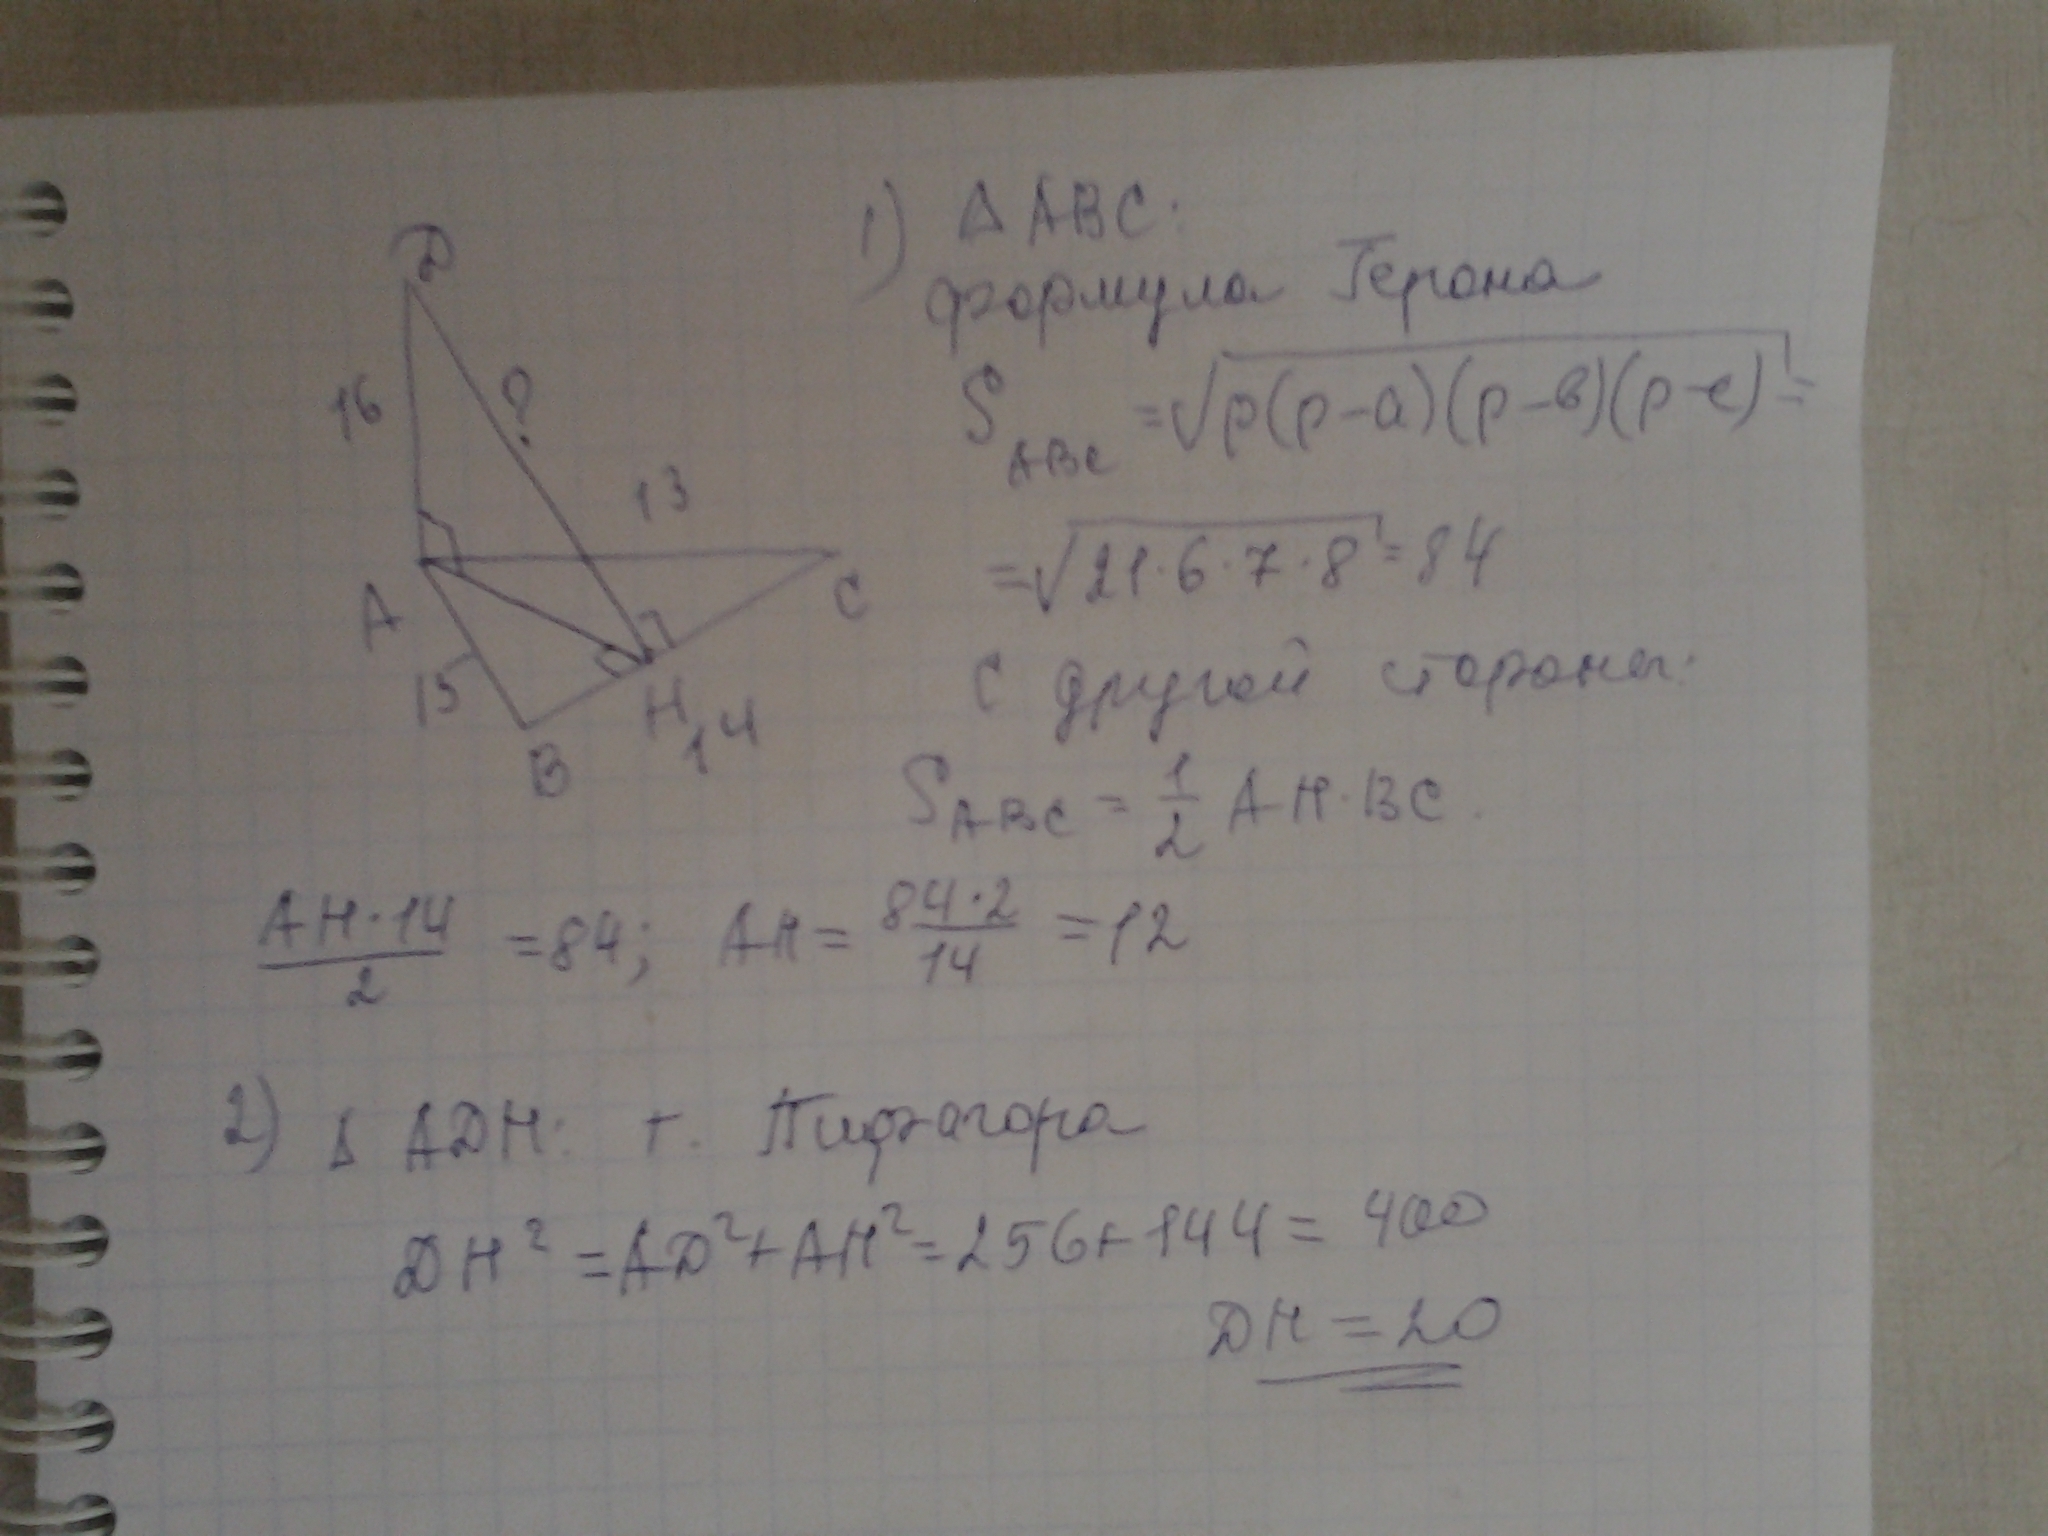 D
16
?
13
A
C
15
H
14
B
1) Δ ABC:
формула Герона
S_ABC = √(p(p-a)(p-в)(p-c)) =
= √(21·6·7·8) = 84
С другой стороны:
S_ABC = 1/2 AH·BC.
AH·14/2 = 84; AH = 84·2/14 = 12
2) Δ ADH: т. Пифагора
DH² = AD² + AH² = 256 + 144 = 400
DH = 20